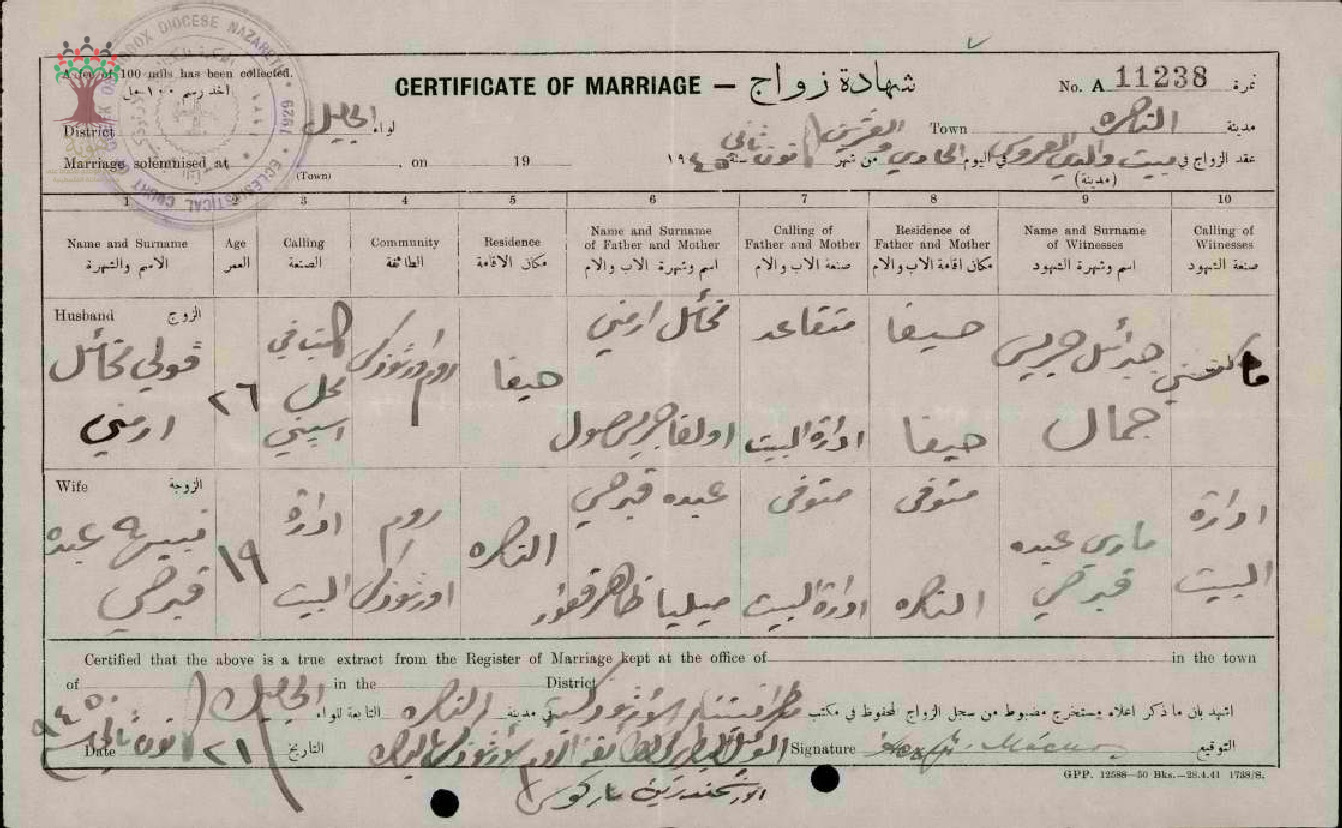 ORTHODOX DIOCESE NAZARETH • 1929 • ECCLESIASTICAL COURT
A fee of 100 mils has been collected.
اخذ رسم ١٠٠ مل
CERTIFICATE OF MARRIAGE — شهادة زواج
No. A 11238 نمرة
District الجليل لواء
Town الناصرة مدينة
Marriage solemnised at , on 19
(Town)
عقد الزواج في بيت والدي العروس في اليوم الحادي والعشرين من شهر كانون ثاني سنة ١٩٤٥
(مدينة)
1 2 3 4 5 6 7 8 9 10
Name and Surname Age Calling Community Residence Name and Surname of Father and Mother Calling of Father and Mother Residence of Father and Mother Name and Surname of Witnesses Calling of Witnesses
الاسم والشهرة العمر الصنعة الطائفة مكان الاقامة اسم وشهرة الاب والام صنعة الاب والام مكان اقامة الاب والام اسم وشهرة الشهود صنعة الشهود
Husband الزوج
مخائل ارمني متقاعد حيفا جبرائيل جريس
مخائل ٢٦ كاتب في محل روم اورثوذكس حيفا
ارمني اولغا جريس ادارة البيت حيفا جمال
Wife الزوجة
عبده قبرصي متوفى متوفى ادارة
نبيهه عبده ١٩ ادارة روم الناصرة ماري عبده
قبرصي البيت اورثوذكس ظاهر ادارة البيت الناصرة قبرصي البيت
Certified that the above is a true extract from the Register of Marriage kept at the office of in the town
of in the District
اشهد بان ما ذكر اعلاه مستخرج مضبوط من سجل الزواج المحفوظ في مكتب الأرثوذكسية في مدينة الناصرة التابعة للواء الجليل
Date ٢١ كانون ثاني ٩٤٥ التاريخ
Signature التوقيع
GPP. 12588—50 Bks.—28.4.41 1738/S.